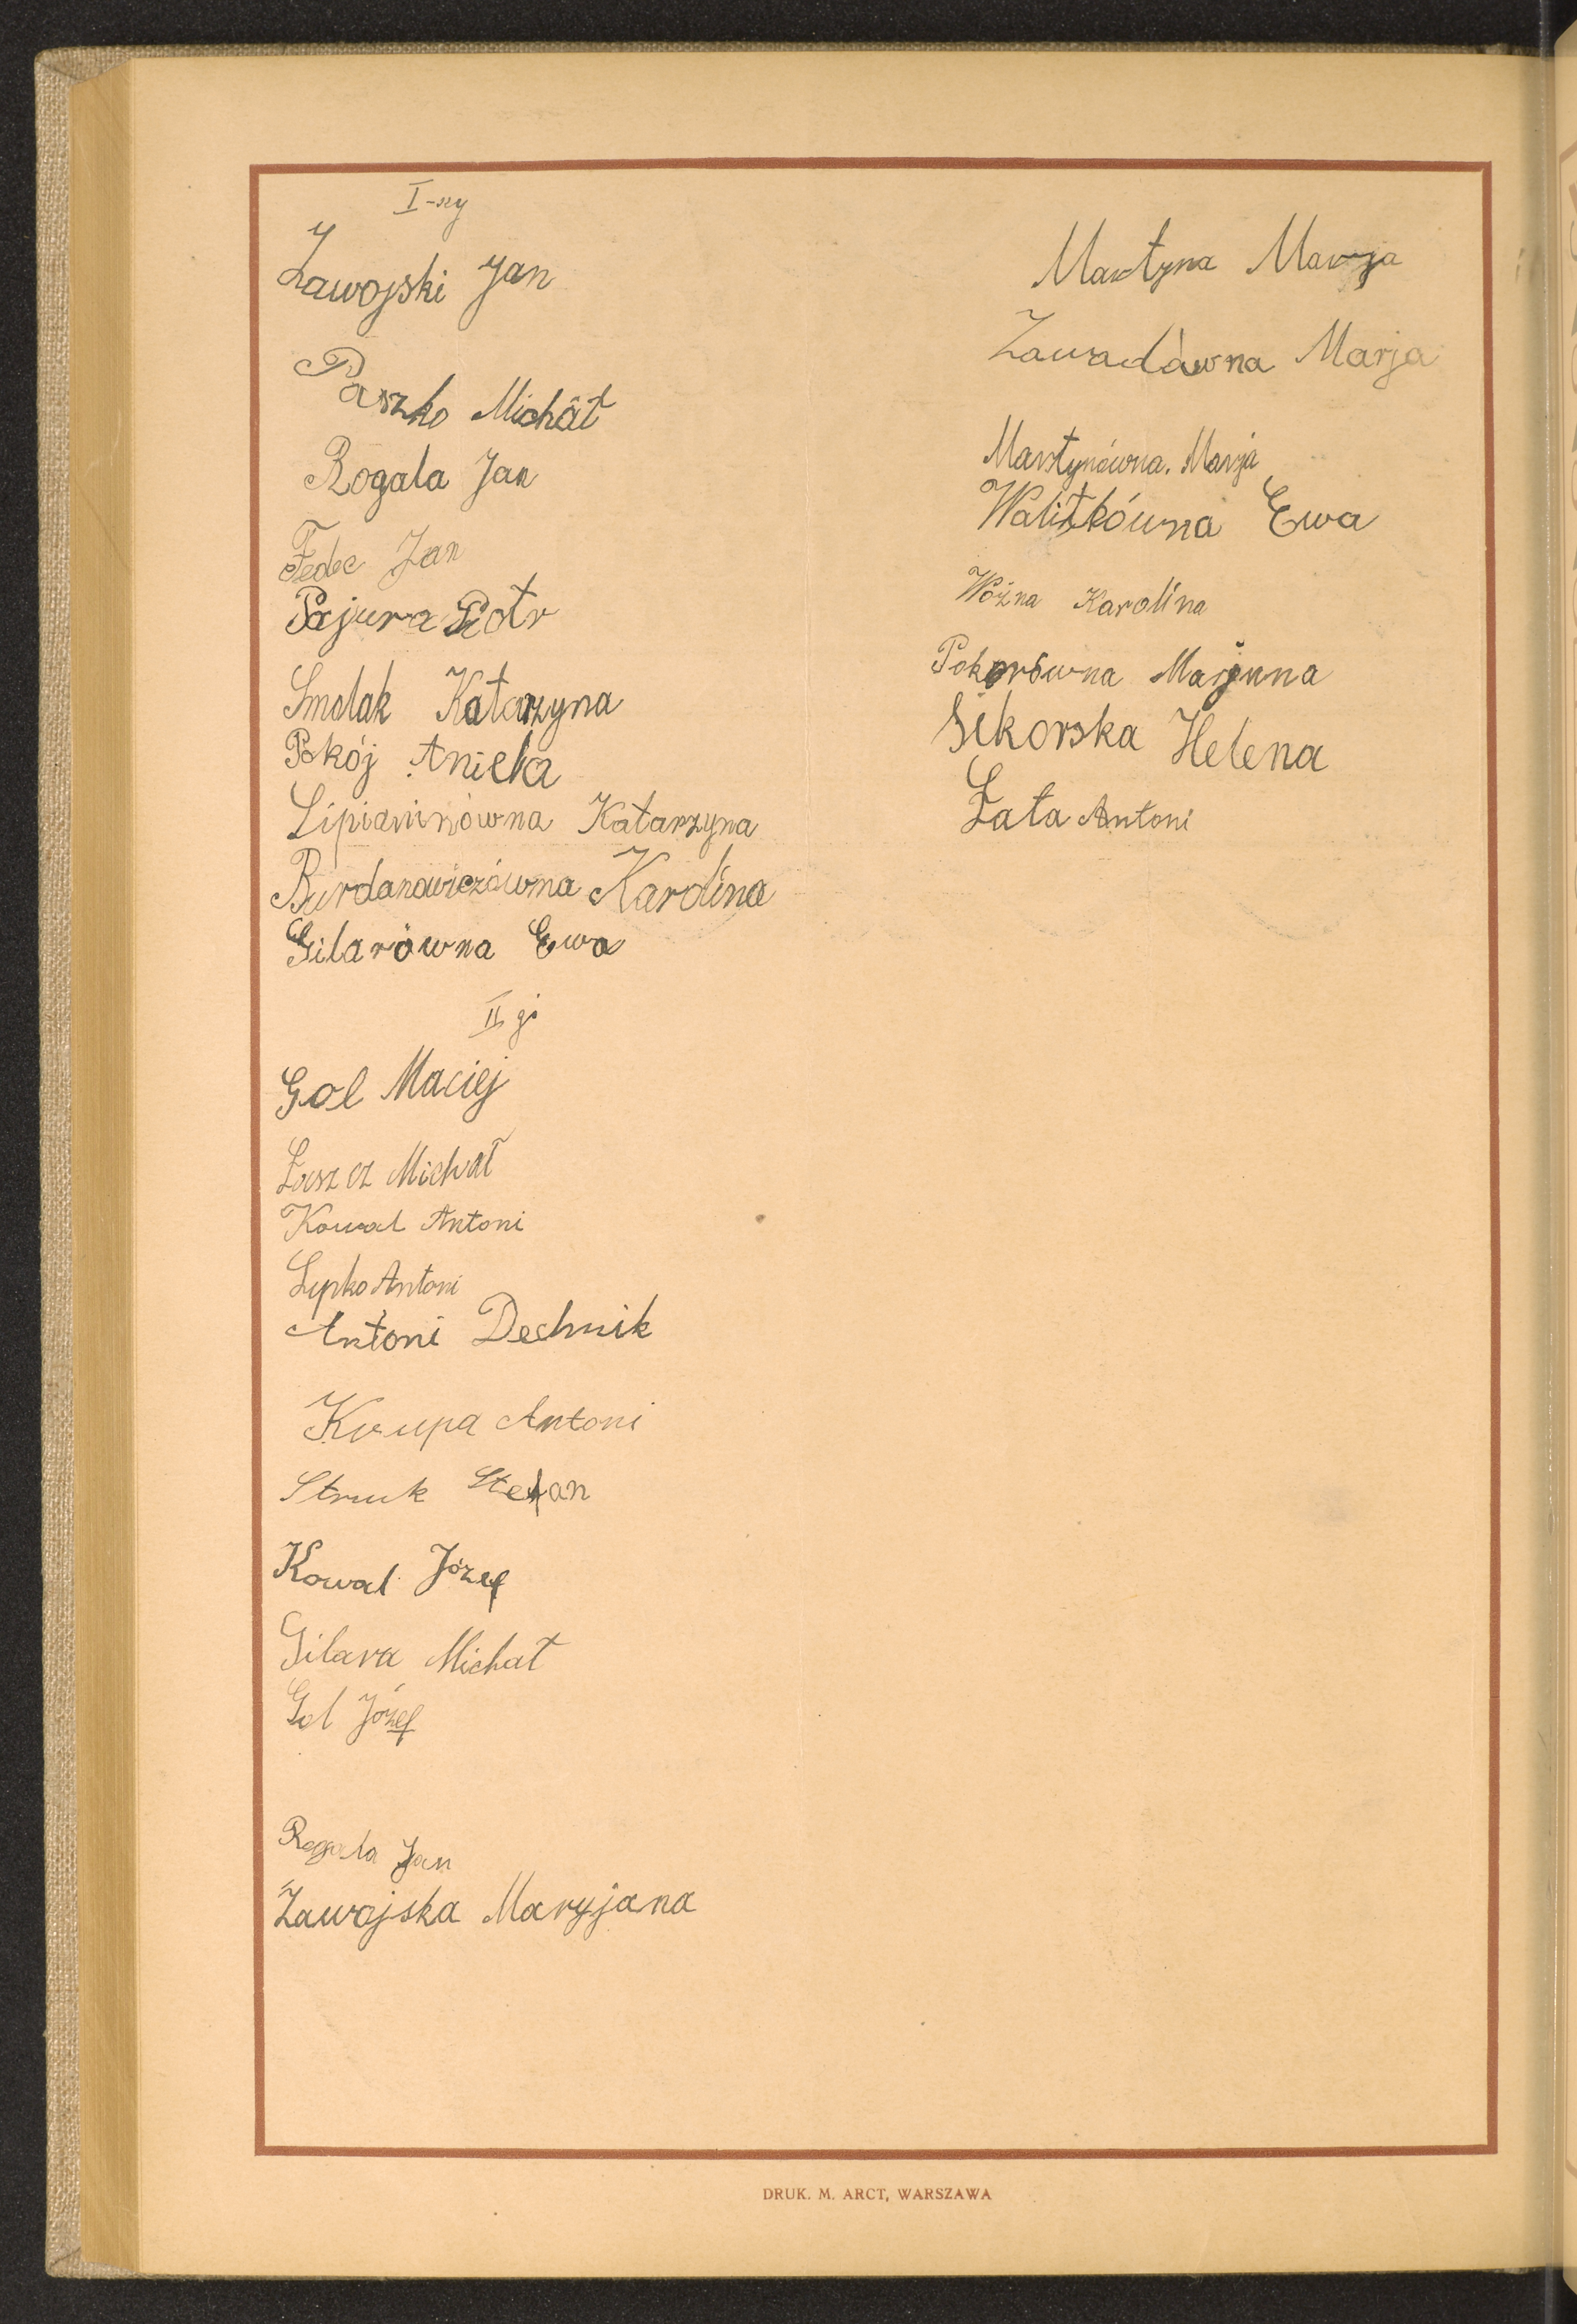 I-szy
Zawojski Jan
Paszko Michał
Rogala Jan
Fedec Jan
Pajura Piotr
Smolak Katarzyna
Pokój Aniela
Lipianinówna Katarzyna
Burdanowiczówna Karolina
Gilarówna Ewa
II gi
Gol Maciej
Łaszcz Michał
Kowal Antoni
Lepko Antoni
Antoni Dechnik
Krupa Antoni
Struk Stefan
Kowal Józef
Gilara Michał
Gol Józef
Rogala Jan
Zawojska Maryjana
Martyna Marja
Zawadówna Marja
Martynówna. Marja
Walitkówna Ewa
Woźna Karolina
Pokorówna Marjanna
Sikorska Helena
Łata Antoni
DRUK. M. ARCT, WARSZAWA